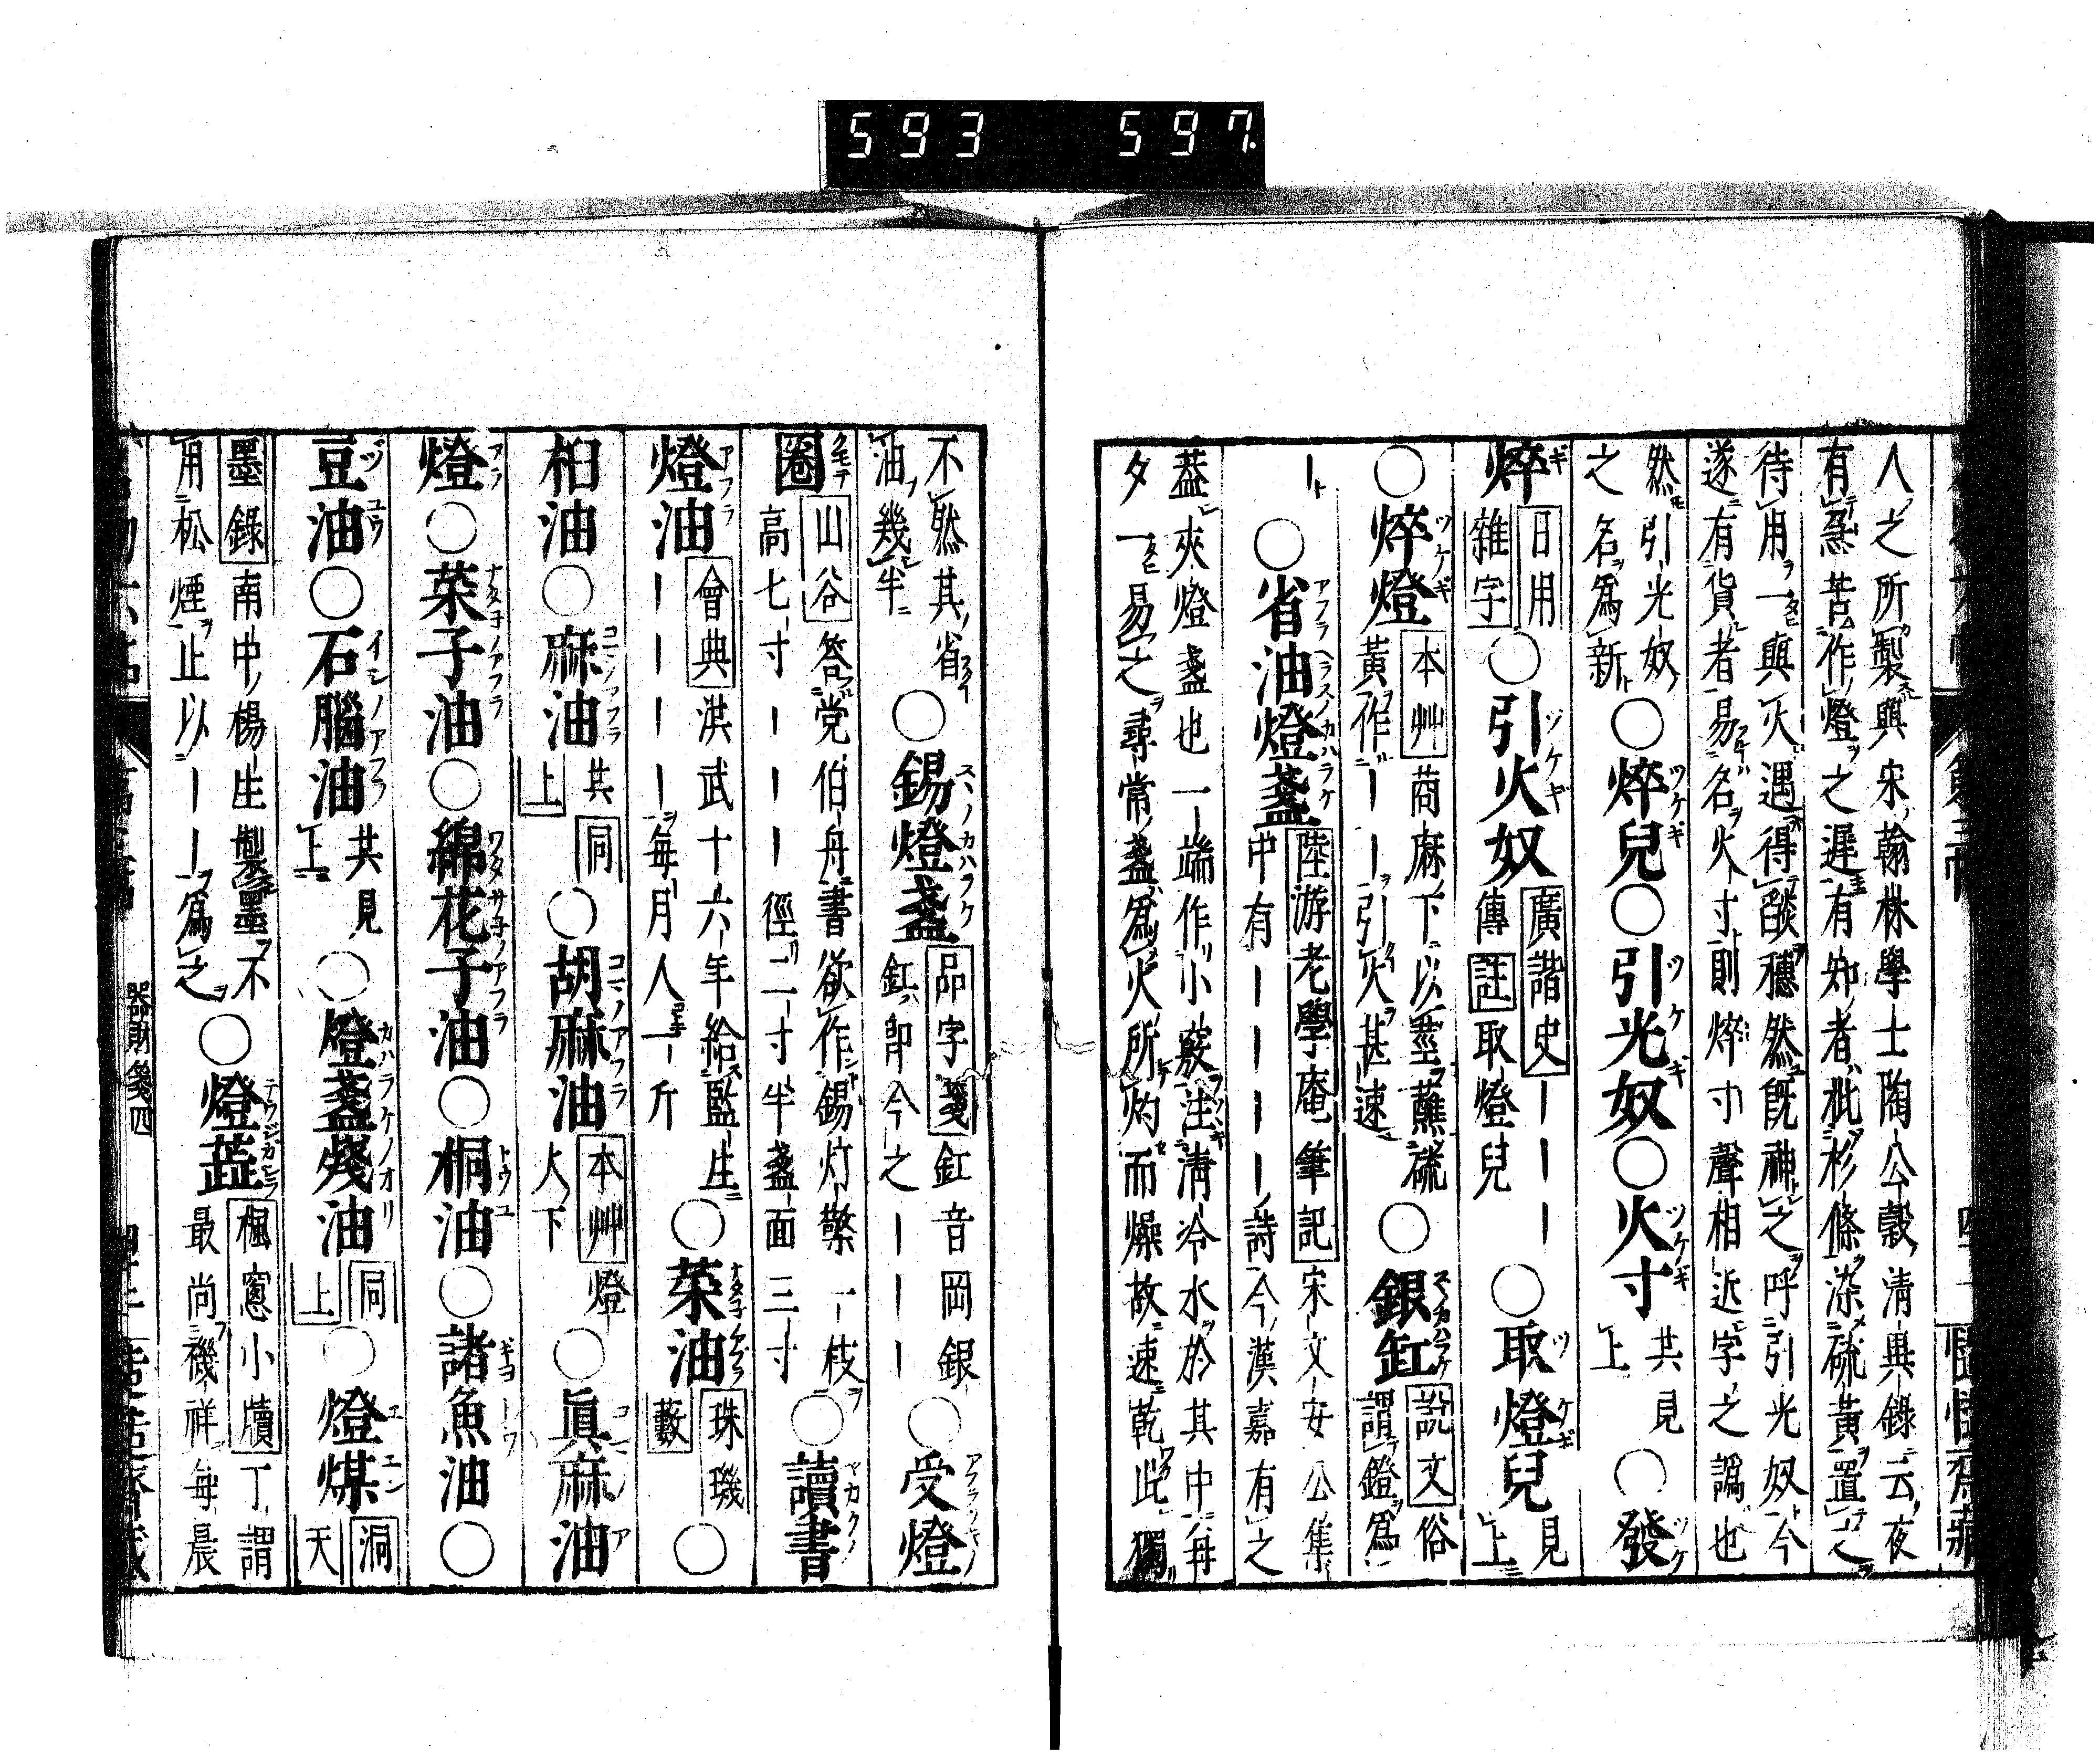 593 597.
人之所製與宋翰林學士陶公穀清異錄云夜
有急苦作燈之遲有知者批杉條染硫黃置之
待用一與火遇得燄穗然既神之呼引光奴今
遂有貨者易名火寸則焠寸聲相近字之譌也
然引光奴
之名爲新
○焠兒○引光奴○火寸 共見上 ○發
焠 日用雜字 ○引火奴 廣諧史 ーーー傳註取燈兒 ○取燈兒 見上
○焠燈 本艸 商麻下以莖蘸硫黃作ーー引火甚速 ○銀缸 說文 俗謂鐙爲
ー ○省油燈盞 陸游老學庵筆記 宋文安公集中有ーーーー詩今漢嘉有之
葢夾燈盞也一端作小竅注淸冷水於其中每
夕一易之尋常盞爲火所灼而燥故速乾此獨
不然其省
油幾半
○錫燈盞 品字箋 釭音岡銀釭卽今之ーーー ○受燈
圈 山谷 答党伯舟書欲作錫灯檠一枝高七寸ーーー徑二寸半盞面三寸 ○讀書
燈油 會典 洪武十六年給監生ーーーー每月人一斤 ○菜油 珠璣藪 ○
桕油○麻油 共同上 ○胡麻油 本艸 燈火下 ○眞麻油
燈○菜子油○綿花子油○桐油○諸魚油○
豆油○石腦油 共見上 ○燈盞殘油 同上 ○燈煤 洞天
墨錄 南中楊生製墨不
用松煙止以ーー爲之
○燈蕋 楓窻小牘 丁謂最尚禨祥每晨
器財箋四